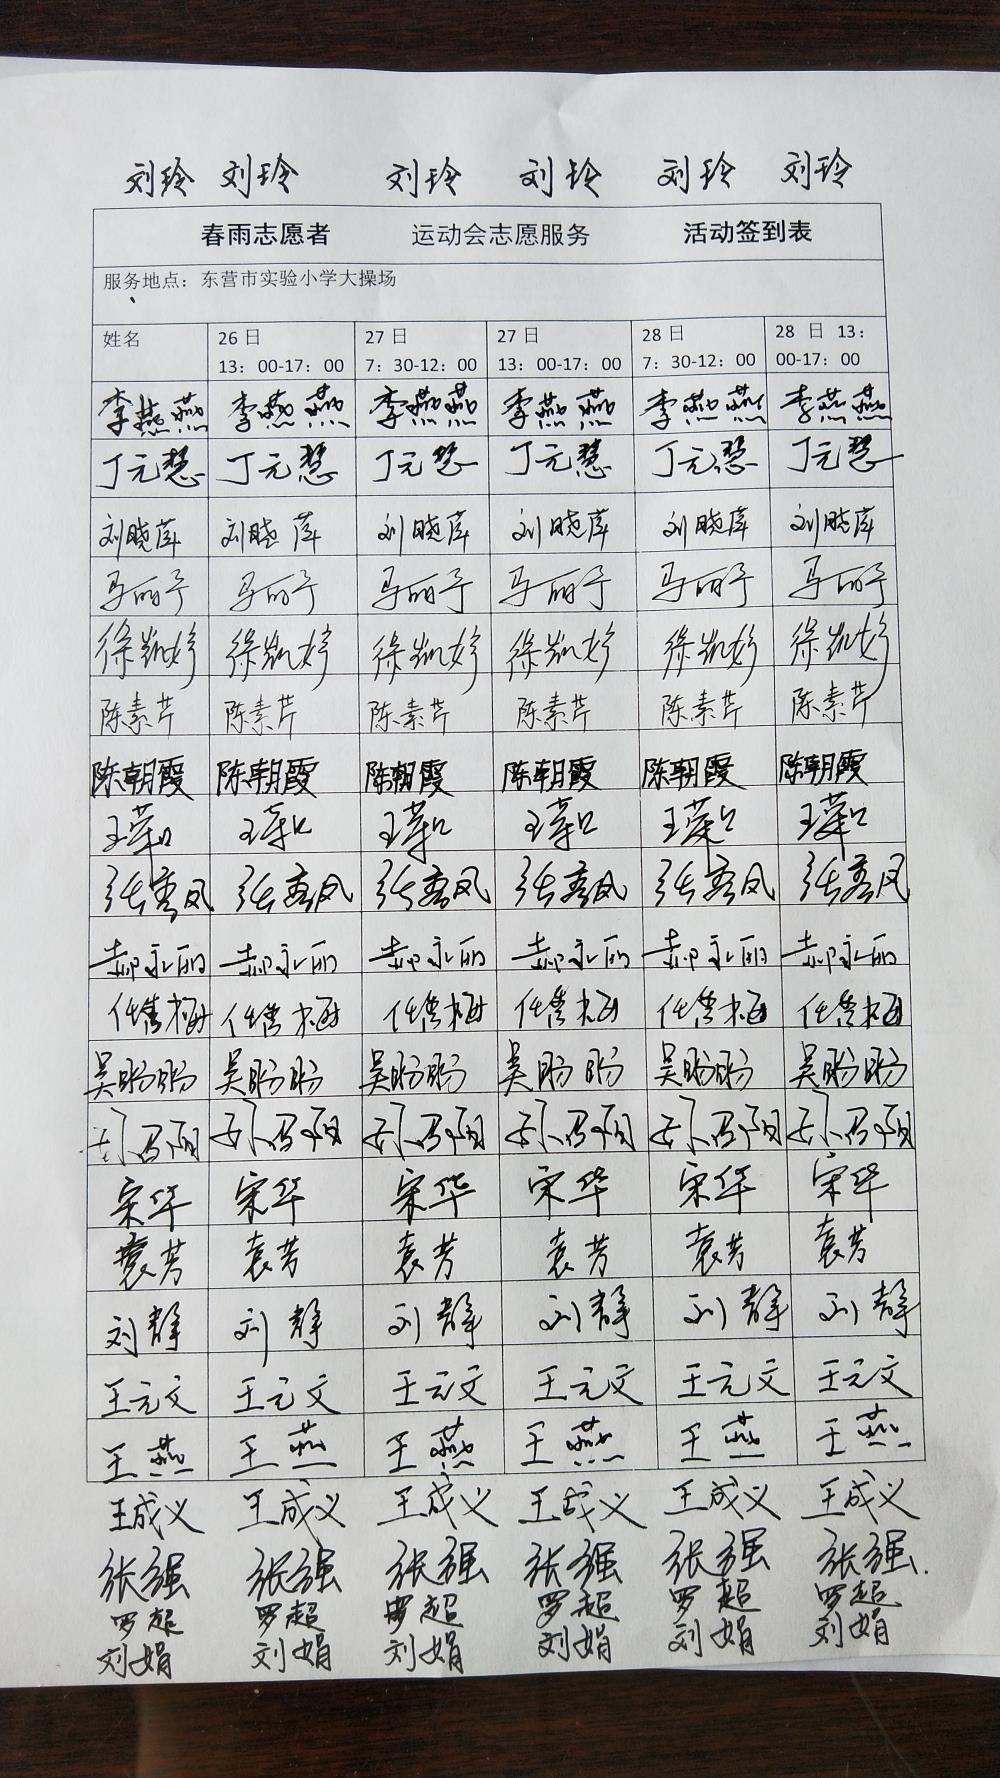 刘玲 刘玲 刘玲 刘玲 刘玲 刘玲
春雨志愿者 运动会志愿服务 活动签到表
服务地点：东营市实验小学大操场
姓名 26日 13：00-17：00 27日 7：30-12：00 27日 13：00-17：00 28日 7：30-12：00 28日 13：00-17：00
李燕燕 李燕燕 李燕燕 李燕燕 李燕燕 李燕燕
丁元慧 丁元慧 丁元慧 丁元慧 丁元慧 丁元慧
刘晓萍 刘晓萍 刘晓萍 刘晓萍 刘晓萍 刘晓萍
马丽宁 马丽宁 马丽宁 马丽宁 马丽宁 马丽宁
徐凯婷 徐凯婷 徐凯婷 徐凯婷 徐凯婷 徐凯婷
陈素芹 陈素芹 陈素芹 陈素芹 陈素芹 陈素芹
陈朝霞 陈朝霞 陈朝霞 陈朝霞 陈朝霞 陈朝霞
张秀凤 张秀凤 张秀凤 张秀凤 张秀凤 张秀凤
郝永丽 郝永丽 郝永丽 郝永丽 郝永丽 郝永丽
任雪梅 任雪梅 任雪梅 任雪梅 任雪梅 任雪梅
吴盼盼 吴盼盼 吴盼盼 吴盼盼 吴盼盼 吴盼盼
宋华 宋华 宋华 宋华 宋华 宋华
袁芳 袁芳 袁芳 袁芳 袁芳 袁芳
刘静 刘静 刘静 刘静 刘静 刘静
王元文 王元文 王元文 王元文 王元文 王元文
王燕 王燕 王燕 王燕 王燕 王燕
王成义 王成义 王成义 王成义 王成义 王成义
张强 张强 张强 张强 张强 张强
罗超 罗超 罗超 罗超 罗超 罗超
刘娟 刘娟 刘娟 刘娟 刘娟 刘娟